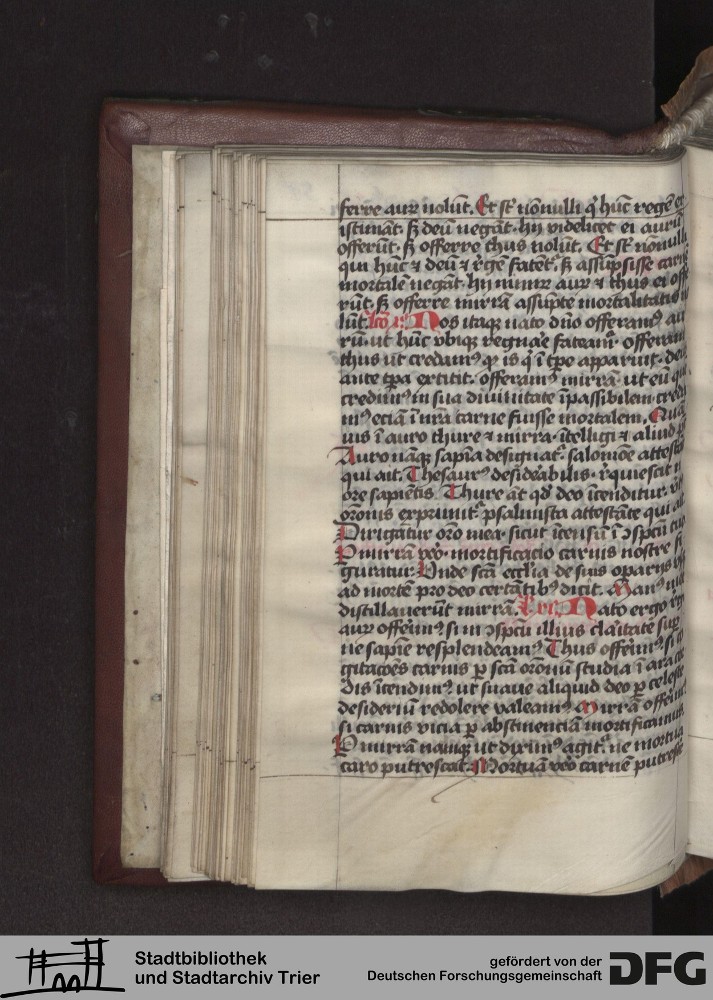 ferre aur̄ nolūt. Et st̄ nōnulli q̇ hūc regē ex
istimāt. s̄ deū negāt. hij videlicet ei aurū
offerūt. s̄ offerre thus nolūt. Et st̄ nōnulli
qui hūc ⁊ deū ⁊ r̄gē fatēt᷑. s̄ assūpsisse carnē
mortalē negāt. hij nimir̄ aur̄ ⁊ thus ei offe
rūt. s̄ offerre mirrā assūpte mortalitatis
lūt. Nos itaq nato dn̄o offeramꝰ au
rū. ut hūc vbiqꝫ regnare fateam᷑. offeramꝰ
thus ut credamꝰ ꝙ is q̇ ī tp̄e apparuit. deꝰ
ante tp̄a extitit. offeramꝰ mirrā. ut eū quē
credimꝰ in sua diuinitate īpassibilem. creda
mꝰ eciā ī nr̄a carne fuisse mortalem. Quā
uis ī auro thure ⁊ mirra. ītelligi ⁊ aliud
Auro nāqꝫ sapīa designat᷑. salomōe attestā
qui ait. Thesaurꝰ desiderabilis. r̄quiescit ī
ore sapiētis. Thure āt qd̄ deo īcenditur.
orōnis exprimit᷑. psalmista attestāte qui ait
Dirigātur orō mea. sicut īcensū ī ɔspc̄u tuo
P mirrā vero. mortificacio carnis nostre fi
guratur. Unde sc̄a eccl̄ia de suis oparijs
ad mortē pro deo certātibꝰ dicit. Manꝰ mee
distillauerūt mirrā. Nato ergo r̄gi
aur̄ offerimꝰ. si in ɔspc̄u illius claritate sup̄
ne sapiē resplendeamꝰ. Thus offerimꝰ. si co
gitacōes carnis p̱ sc̄a orōnū studia ī ara cor
dis īcendimꝰ. ut suaue aliquid deo p̱ celeste
desideriū redolere valeamꝰ. Mirrā offerimꝰ
si carnis vicia p̱ abstinenciā mortificamus.
P mirrā namqꝫ ut diximꝰ agit᷑. ne mortua
caro putrescat. Mortuā vero carnē putresc
Stadtbibliothek
und Stadtarchiv Trier
gefördert von der
Deutschen Forschungsgemeinschaft
DFG